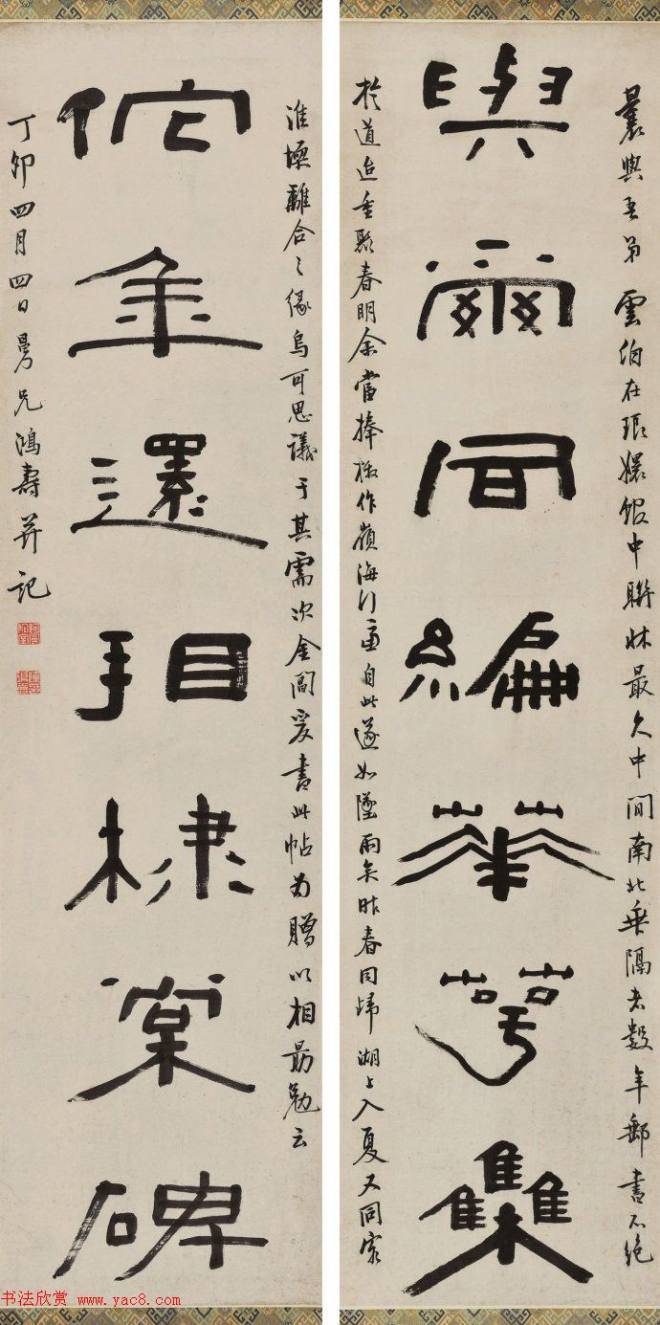 與爾同編華萼集
曩與吾弟雲伯在琅嬛館中聯牀最久中間南北乖隔者數年郵書不絕
於道迨重聚春明余當捧檄作嶺海行 自此遂如墜雨矣昨春同歸湖上入夏又同客
佗金還相棣棠碑
淮壖離合之緣烏可思議于其需次金閶爰書此帖為贈以相勗勉云
丁卯四月四日曼兄鴻壽并記
书法欣赏 www.yac8.com